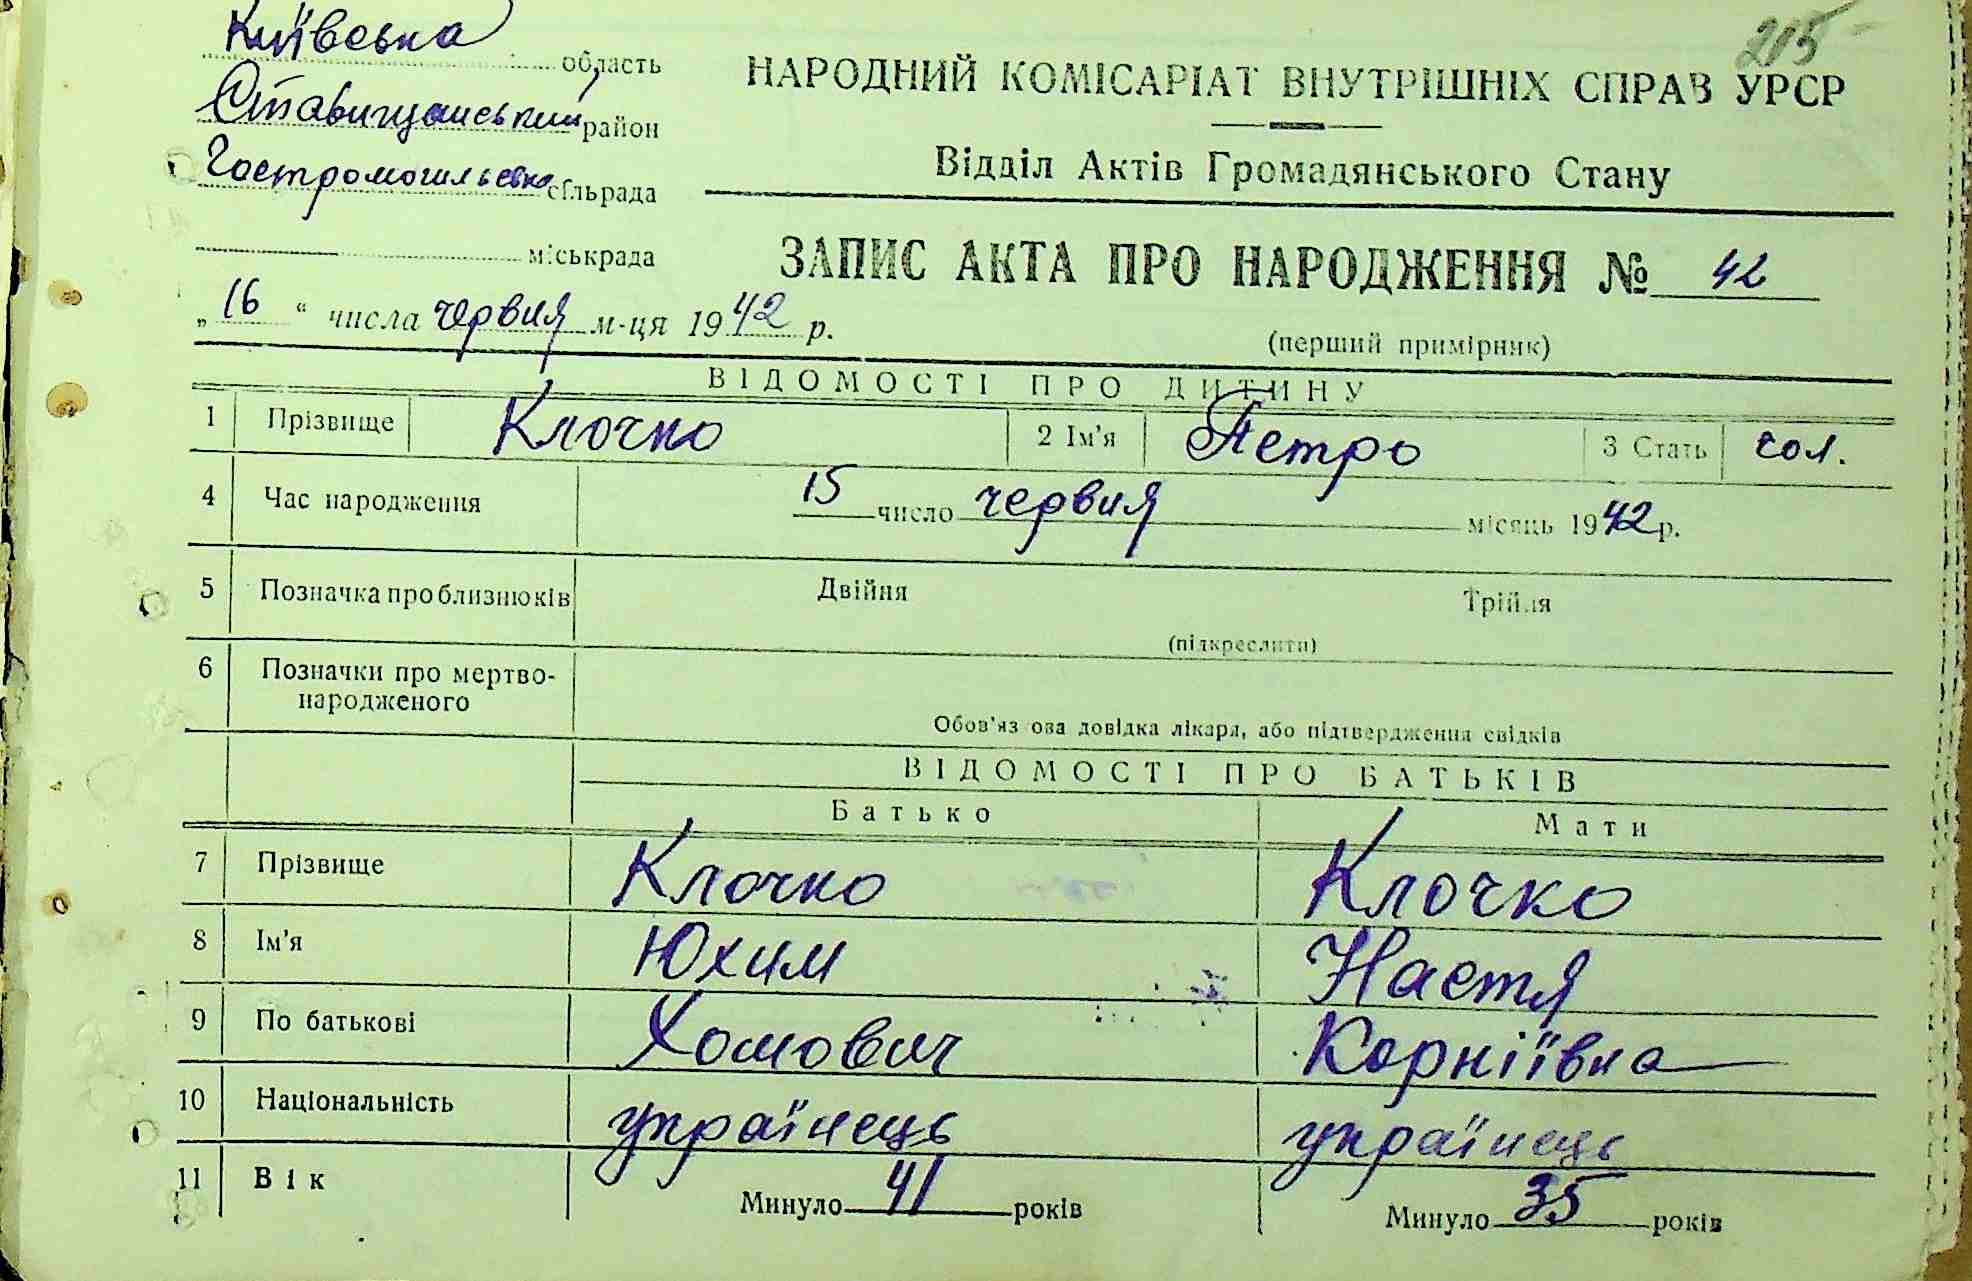 205
Київська область
Ставищанський район
Гостромогильська сільрада
міськрада
НАРОДНИЙ КОМІСАРІАТ ВНУТРІШНІХ СПРАВ УРСР
Відділ Актів Громадянського Стану
ЗАПИС АКТА ПРО НАРОДЖЕННЯ № 42
„16“ числа червня м-ця 1942 р.
(перший примірник)
ВІДОМОСТІ ПРО ДИТИНУ
1 Прізвище Клочко 2 Ім'я Петро 3 Стать чол.
4 Час народження 15 число червня місяць 1942 р.
5 Позначка про близнюків Двійня Трійля
(підкреслити)
6 Позначки про мертво-
народженого
Обов'яз ова довідка лікаря, або підтвердження свідків
ВІДОМОСТІ ПРО БАТЬКІВ
Батько Мати
7 Прізвище Клочко Клочко
8 Ім'я Юхим Настя
9 По батькові Хомович Корніївна
10 Національність українець українець
11 Вік Минуло 41 років Минуло 35 років